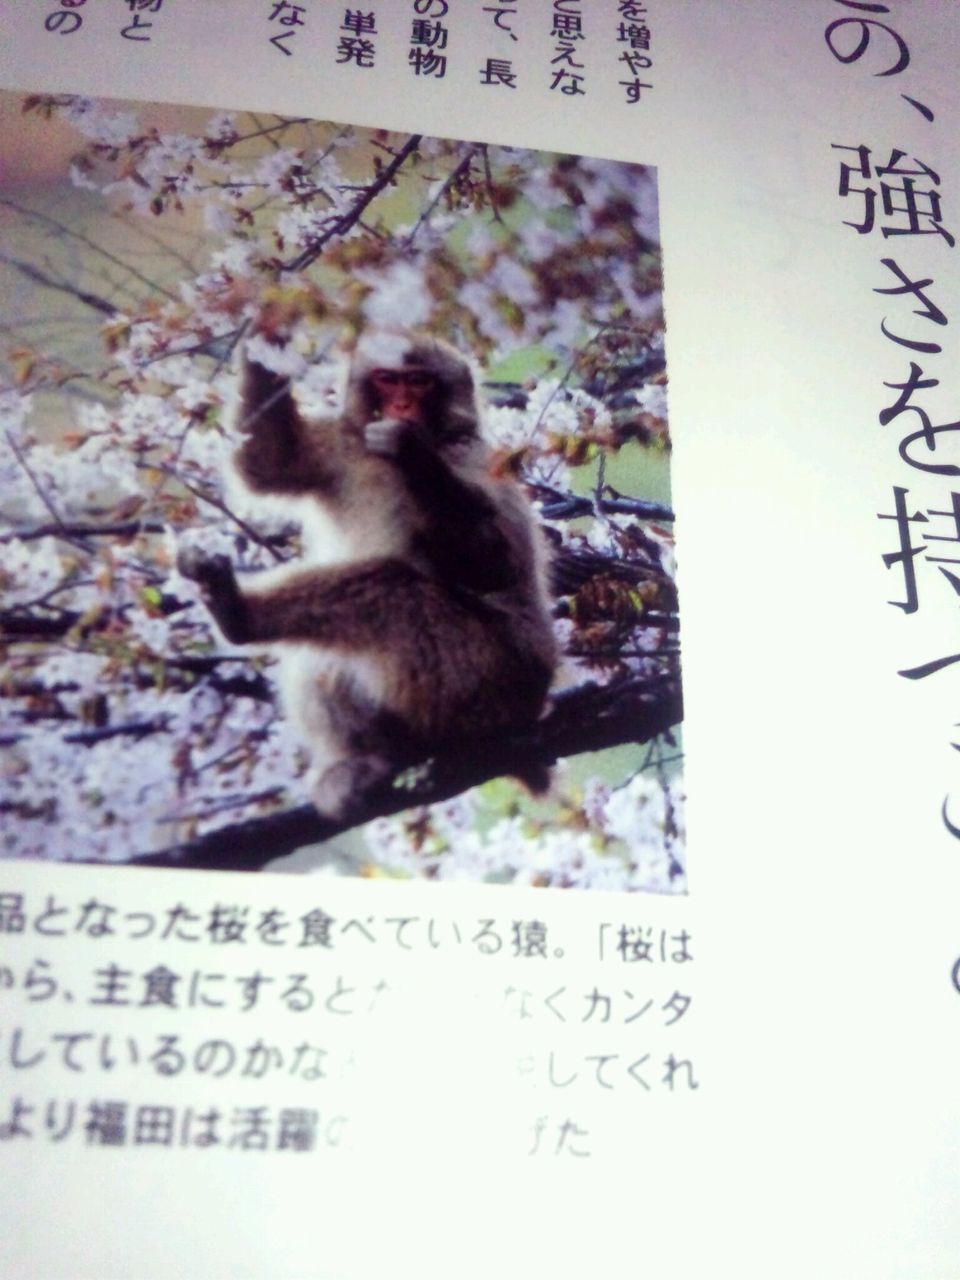 の、強さを持
を増やす
と思えな
って、長
の動物
単発
なく
物と
るの
品となった桜を食べている猿。「桜は
から、主食にすると なくカンタ
しているのかな してくれ
より福田は活躍の げた